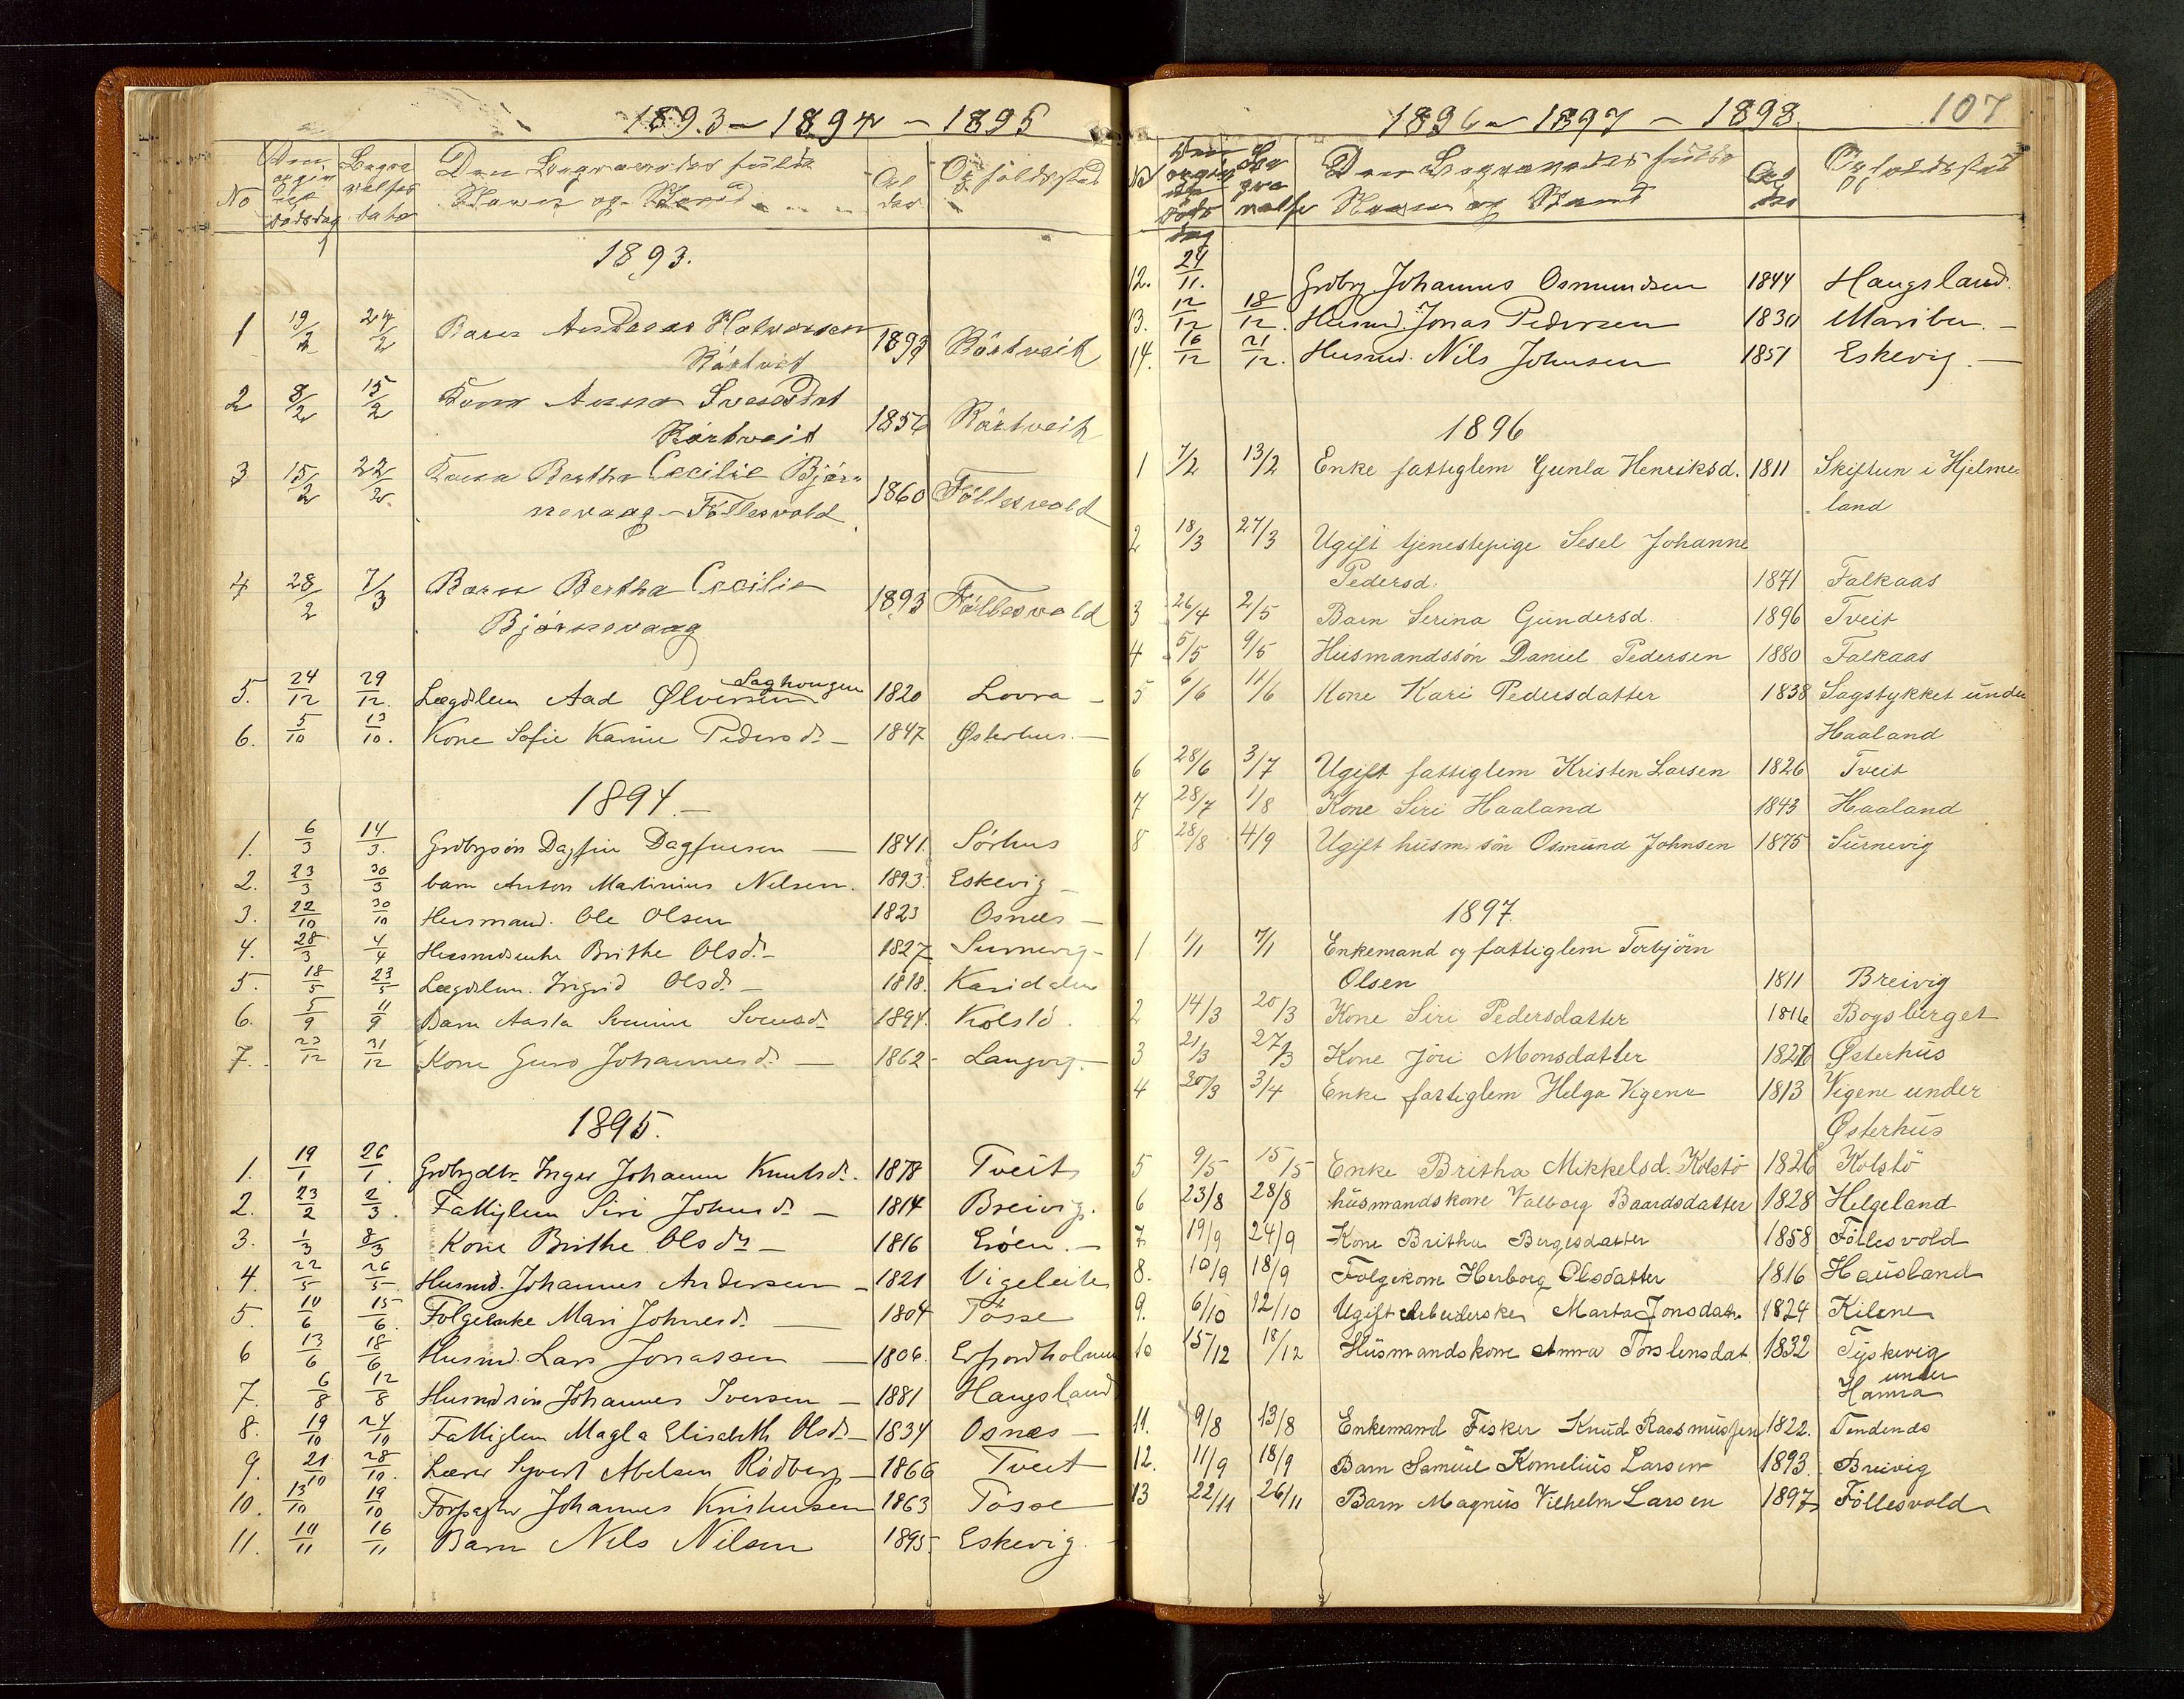 1893 – 1894 – 1895
No Den opgivne dødsdag Begravelses dato Den Begravedes fulde Navn og Stand Alder Opholdssted
1893.
1 19/2 24/2 Barn Andreas Halvorsen
Rørtveit 1893 Rørtveit
2 8/2 15/2 Kona Anna Svensdat
Rørtveit 1856 Rørtveit
3 15/2 22/2 Kona Bertha Cecilie Bjør-
nevaag – Føllesvold 1860 Føllesvold
4 28/2 7/3 Barn Bertha Cecilie
Bjørnevaag 1893 Føllesvold
5. 24/12 29/12. Lægdslem Aad Ølversen Saghougen 1820 Lovra –
6. 5/10 13/10. Kone Sofie Karine Pedersdr – 1847 Østerhus. –
1894. –
1. 6/3 14/3. Grdbrgsøn Dagfin Dagfinsen — 1841. Sørhus
2. 23/3 30/3 barn Anton Martinius Nilsen. 1893. Eskevig –
3. 22/10 30/10 Husmand. Ole Olsen 1823 Osnæs –
4. 28/3 4/4 Husmdsenke Brithe Olsdr – 1827 Surnevig –
5. 18/5 23/5 Lægdslem. Ingrid Olsdr – 1818. Karidalen
6. 5/9 11/9 Barn Aasta Svenine Svensdr 1894. Kolstö.
7. 23/12 31/12 Kone Guro Johannesdr — 1862 – Langvig. –
1895.
1. 19/1 26/1. Grdbrgdtr Inger Johanne Knutsdr. 1878 Tveit
2. 23/2 2/3. Fattiglem Siri Johnsdr – 1814 Breivig.
3. 1/3 8/3 Kone Brithe Olsdr – 1816 Eröen. –
4. 22/5 26/5. Husmd. Johannes Andersen – 1821 Vigeleite
5. 10/6 15/6. Folgeenke Mari Johnsdr. — 1804 Tösse
6 13/6 18/6 Husmd. Lars Jonassen — 1806. Erfjordholmen
7. 6/8 12/8 Husmdsön Johannes Iversen – 1881 Haugsland
8. 19/10 24/10 Fattiglem Magla Elisabeth Olsdr – 1834 Osnæs –
9. 21/10 28/10. Lærer Syvert Abelsen Rödberg – 1866 Tveit
10. 13/10 19/10 Forpagter Johannes Kristensen 1863 Tösse
11. 10/11 16/11 Barn Nils Nilsen 1895. Eskevig.
1896 – 1897 – 1898 107
No Den opgivne døds dag Begravelse Den Begravedes fulde Navn og Stand Alder Opholdssted
12. 24/11. Grdbrg. Johannes Osmundsen 1844 Haugsland.
13. 12/12 18/12. Husmd. Jonas Pedersen 1830 Maribu. –
14. 16/12 21/12. Husmd. Nils Johnsen 1851 Eskevig. —
1896
1 7/2 13/2 Enke fattiglem Gunla Henriksd. 1811 Skiftun i Hjelme-
land
2 18/3 27/3 Ugift tjenestepige Sesel Johanne
Pedersd. 1871 Falkaas
3 26/4 2/5 Barn Serina Gundersd. 1896 Tveit
4 5/5 9/5 Husmandssön Daniel Pedersen 1880 Falkaas
5 6/6 11/6 Kone Kari Pedersdatter 1838 Sagstykket under
Haaland
6 28/6 3/7 Ugift fattiglem Kristen Larsen 1826 Tveit
7 28/7 1/8 Kone Siri Haaland 1843 Haaland
8 28/8 4/9 Ugift husm. sön Osmund Johnsen 1875 Surnevig
1897.
1 1/1 7/1 Enkemand og fattiglem Torbjörn
Olsen 1811 Breivig
2 14/3 20/3 Kone Siri Pedersdatter 1816 Bogsberget
3 21/3 27/3 Kone Jöri Monsdatter 1826 Østerhus
4 30/3 3/4 Enke fattiglem Helga Vigene 1813 Vigene under
Østerhus
5 9/5 15/5 Enke Britha Mikkelsd. Kolstö 1826 Kolstö
6 23/8 28/8 husmandskone Valborg Baardsdatter 1828 Helgeland
7 19/9 24/9 Kone Britha Bergesdatter 1858 Föllesvold
8. 10/9 18/9 Folgekone Herborg Olsdatter 1816 Hausland
9. 6/10 12/10 Ugift Arbeiderske Marta Jonsdatr. 1824 Kilene
10 15/12 18/12 Husmandskone Anna Torstensdat. 1832 Tyskevig
under
Hamra
11. 9/8 13/8 Enkemand Fisker Knud Rasmussen 1822. Tendenes
12. 11/9 18/9 Barn Samuel Kornelius Larsen 1893. Breivig
13 22/11 26/11 Barn Magnus Vilhelm Larsen 1897 Föllesvold